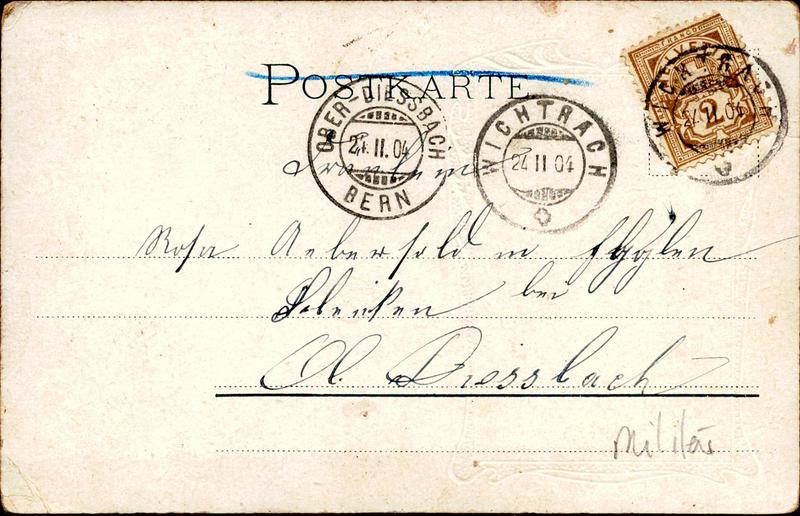 POSTKARTE
OBER-DIESSBACH
21.II.04
BERN
WICHTRACH
24 II 04
FRANCO
HELVETIA
2
WICHTRACH
II.04
Fräulein
Rosa Aebersold in
bei
Ob. Diessbach
Militär